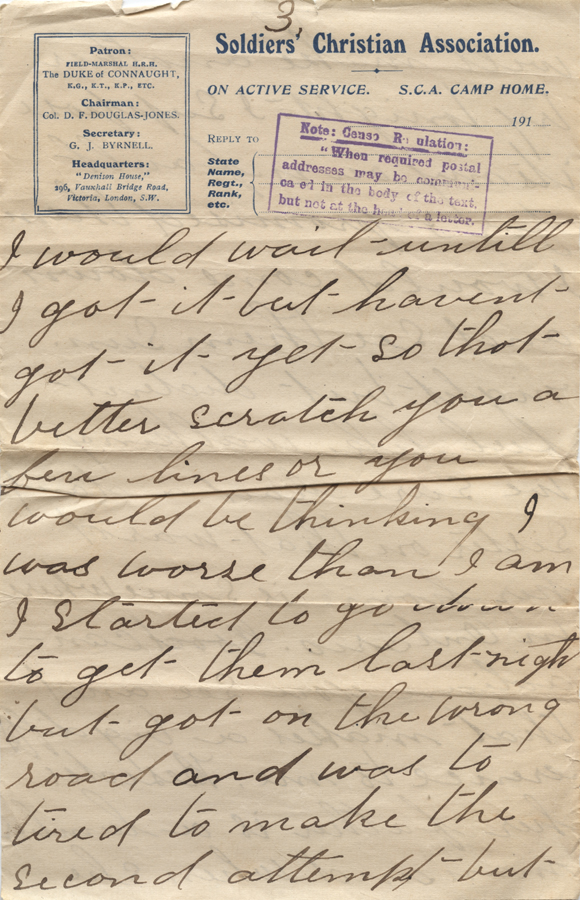 3
Patron:
FIELD-MARSHAL H.R.H.
The DUKE of CONNAUGHT,
K.G., K.T., K.P., ETC.
Chairman:
Col. D. F. DOUGLAS-JONES.
Secretary:
G. J. BYRNELL.
Headquarters:
"Denison House,"
296, Vauxhall Bridge Road,
Victoria, London, S.W.
Soldiers' Christian Association.
ON ACTIVE SERVICE. S.C.A. CAMP HOME.
191
REPLY TO
State
Name,
Regt.,
Rank,
etc.
Note: Censo R ulation:
"When required postal
addresses may be
in the body of the text,
but not at the head of a letter.
I would wait untill
I got it but havent
got it yet so thot
better scratch you a
few lines or you
would be thinking I
was worse than I am
I started to go down
to get them last nigh
but got on the wrong
road and was to
tired to make the
second attempt but